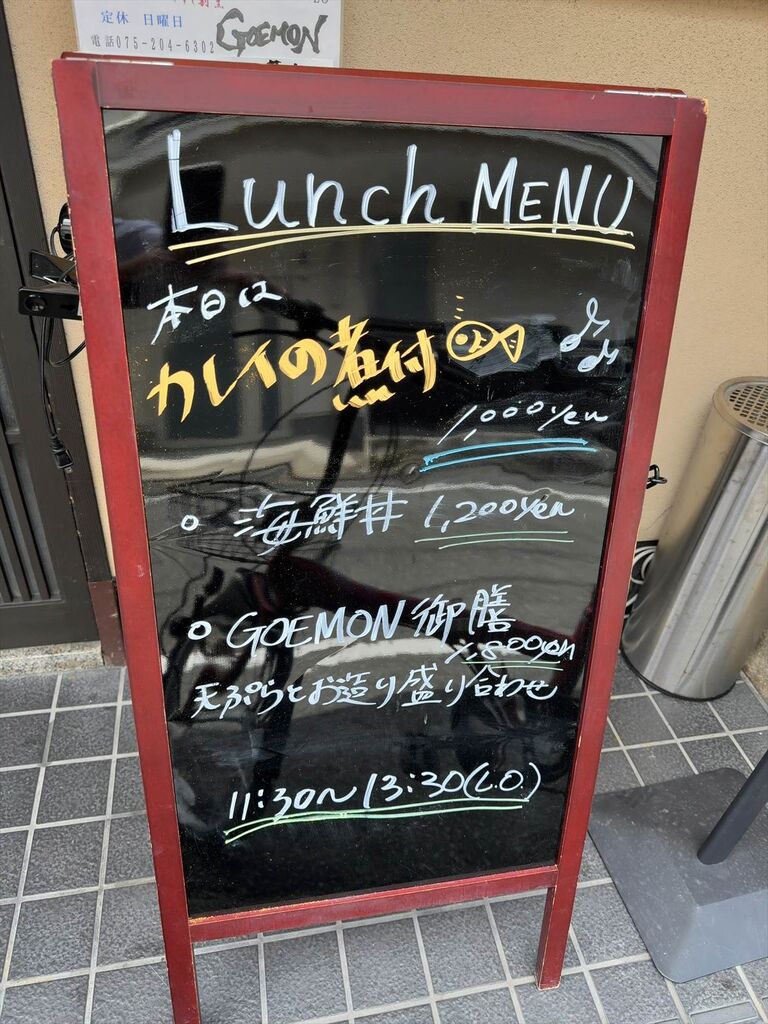 定休 日曜日
電話075-204-6302 GOEMON
Lunch MENU
本日は
カレイの煮付
1,000yen
○ 海鮮丼 1,200yen
○ GOEMON 御膳
1,800yen
天ぷらとお造り盛り合わせ
11:30~13:30(L.O.)